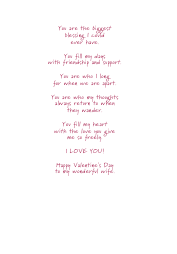 You are the biggest
blessing I could
ever have.
You fill my days
with friendship and support.
You are who I long
for when we are apart.
You are who my thoughts
always return to when
they wander.
You fill my heart
with the love you give
me so freely.
I LOVE YOU!
Happy Valentine's Day
to my wonderful wife.